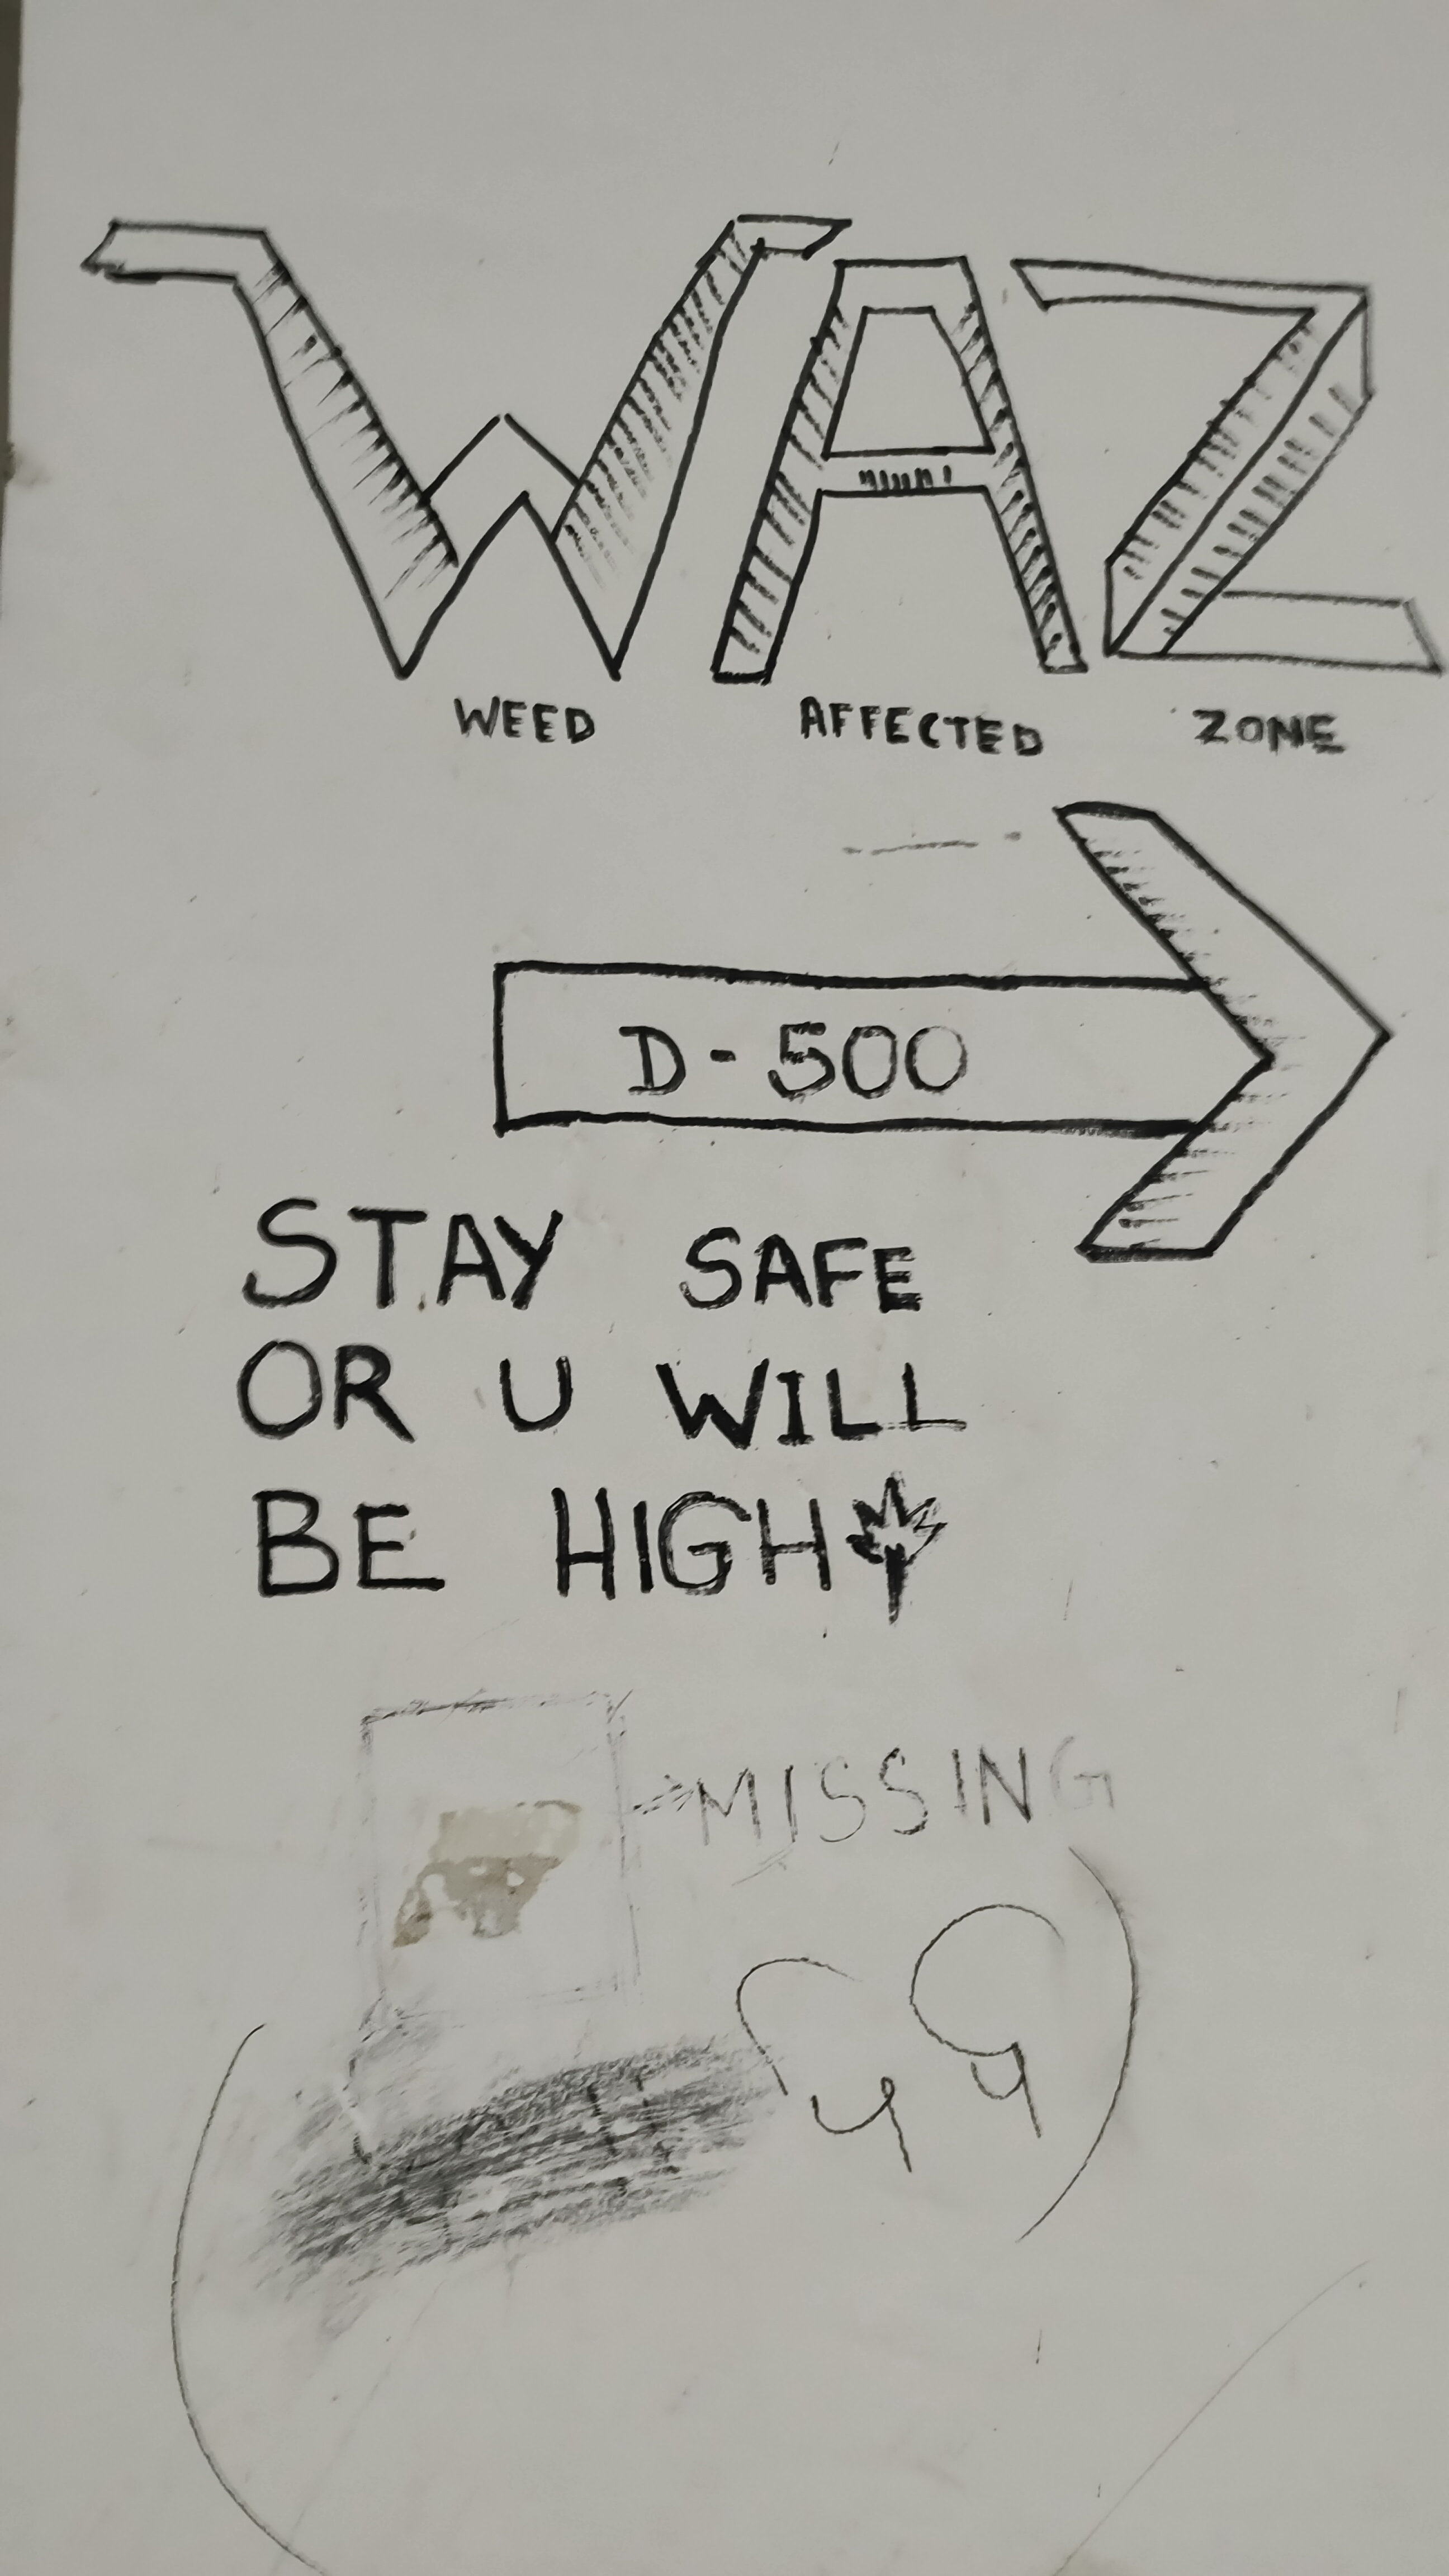 WAZ
WEED AFFECTED ZONE
D-500
STAY SAFE
OR U WILL
BE HIGH
MISSING